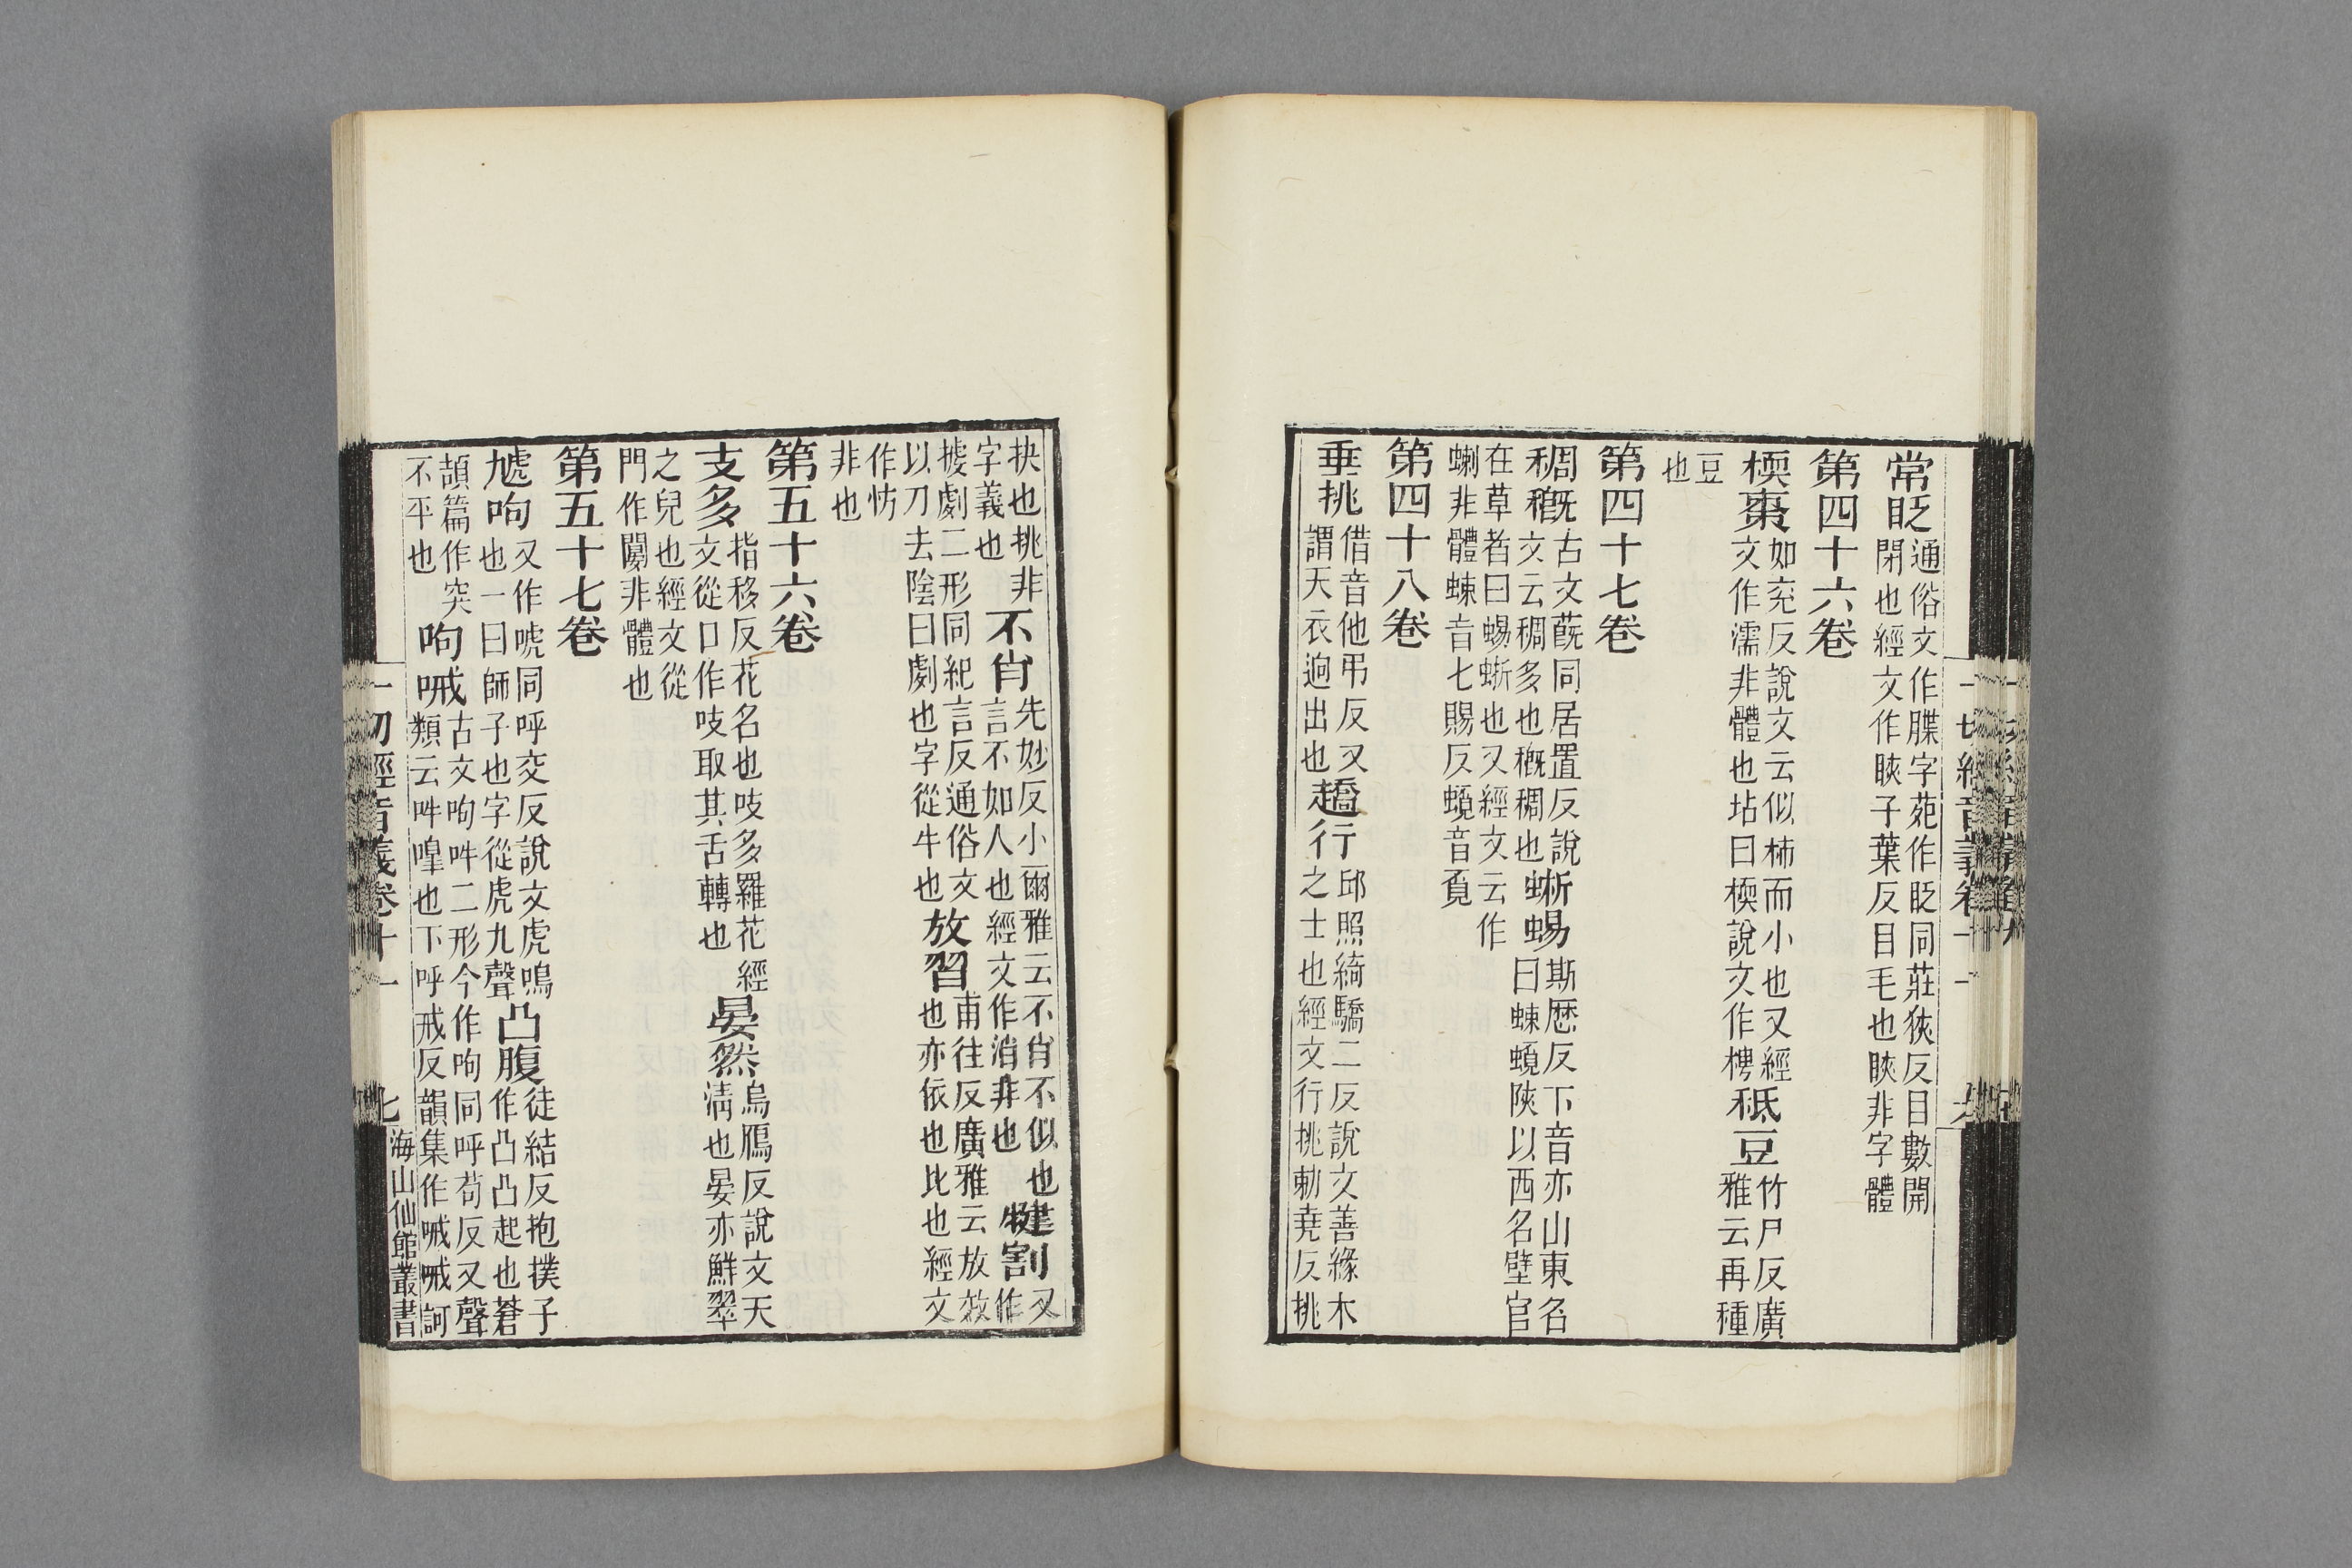 常眨通俗文作䐑字苑作眨同莊狹反目數開
閉也經文作䀹子葉反目毛也䀹非字體
第四十六卷
檽棗如兖反說文云似柿而小也又經
文作濡非體也坫曰檽說文作梬秪豆竹尸反廣
雅云再種
豆
也
第四十七卷
稠穊古文蔇同居置反說
文云稠多也穊稠也蜥蜴斯歷反下音亦山東名
曰蝀螔陝以西名壁官
在草者曰蜴蜥也又經文云作
蝲非體蝀音七賜反螔音覓
第四十八卷
垂挑借音他弔反又
謂天衣迥出也趫行邱照綺驕二反說文善緣木
之士也經文行挑勅堯反挑
抉也挑非不肖先妙反小爾雅云不肖不似也
字義也言不如人也經文作消非也犍割又
作
㨿劇二形同紀言反通俗文
以刀去陰曰劇也字從牛也放習甫往反廣雅云放效
也亦依也比也經文
作妨
非也
第五十六卷
支多指移反花名也吱多羅花經
文從口作吱取其舌轉也晏然烏鴈反說文天
清也晏亦鮮翠
之皃也經文從
門作闅非體也
第五十七卷
虓呴又作唬同呼交反說文虎鳴
也一曰師子也字從虎九聲凸腹徒結反抱撲子
作凸凸起也蒼
頡篇作突
不平也呴㖑古文呴吽二形今作呴同呼苟反又聲
類云吽嘷也下呼戒反韻集作㖑㖑訶
一切經音義卷十一
七
海山仙館叢書